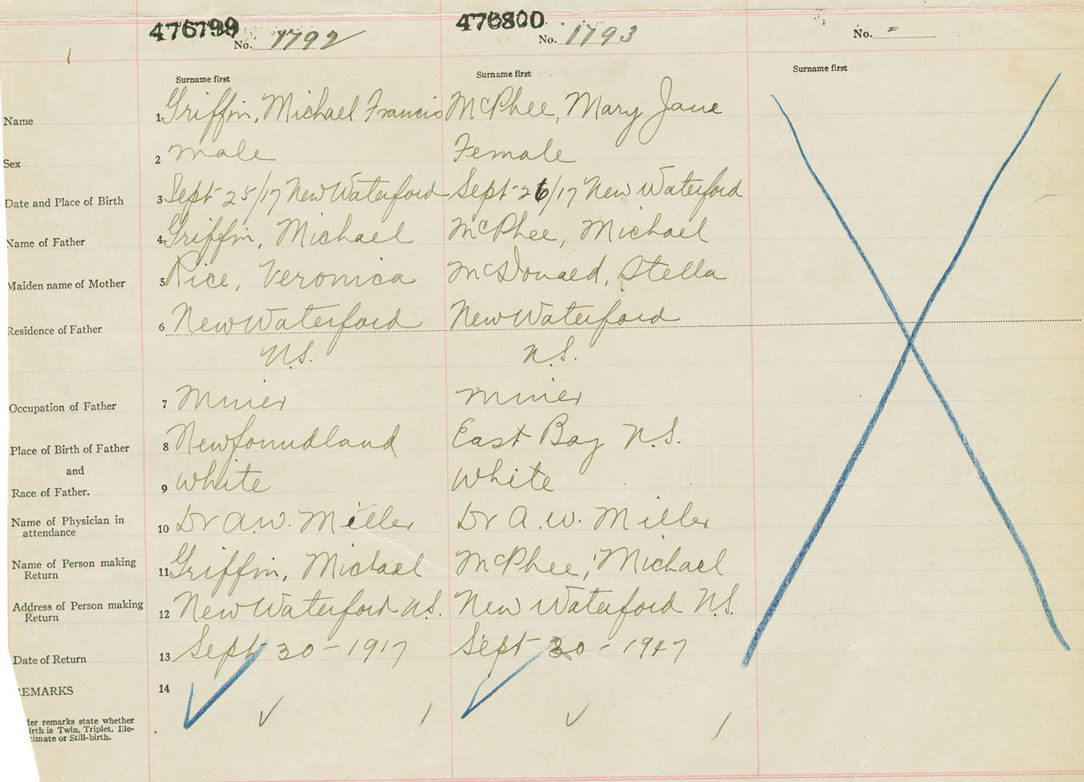 476799 476800
No. 1792 No. 1793 No. -
Surname first Surname first Surname first
Name 1 Griffin, Michael Francis McPhee, Mary Jane
Sex 2 Male Female
Date and Place of Birth 3 Sept 25/17 New Waterford Sept 26/17 New Waterford
Name of Father 4 Griffin, Michael McPhee, Michael
Maiden name of Mother 5 Rice, Veronica McDonald, Stella
Residence of Father 6 New Waterford New Waterford
N.S. N.S.
Occupation of Father 7 Miner Miner
Place of Birth of Father 8 Newfoundland East Bay N.S.
and
Race of Father. 9 White White
Name of Physician in
attendance 10 Dr A.W. Miller Dr A.W. Miller
Name of Person making
Return 11 Griffin, Michael McPhee, Michael
Address of Person making
Return 12 New Waterford N.S. New Waterford N.S.
Date of Return 13 Sept 30 - 1917 Sept 30 - 1947
EMARKS 14
der remarks state whether
irth is Twin, Triplet, Ille-
timate or Still-birth.